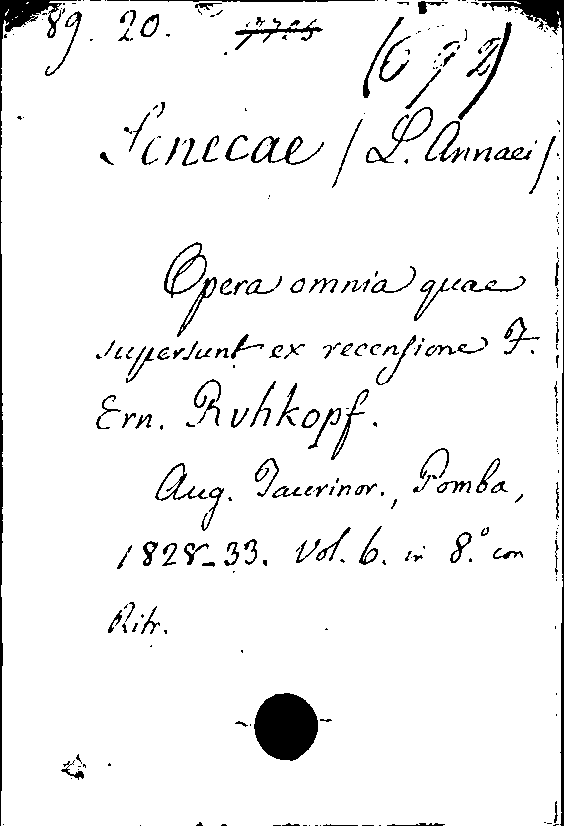 89. 20. 7725
(692)
Senecae (L. Annaei)
Opera omnia quae
supersunt ex recensione F.
Ern. Ruhkopf.
Aug. Taurinor., Pomba,
1828-33. Vol. 6. in 8.° con
Ritr.